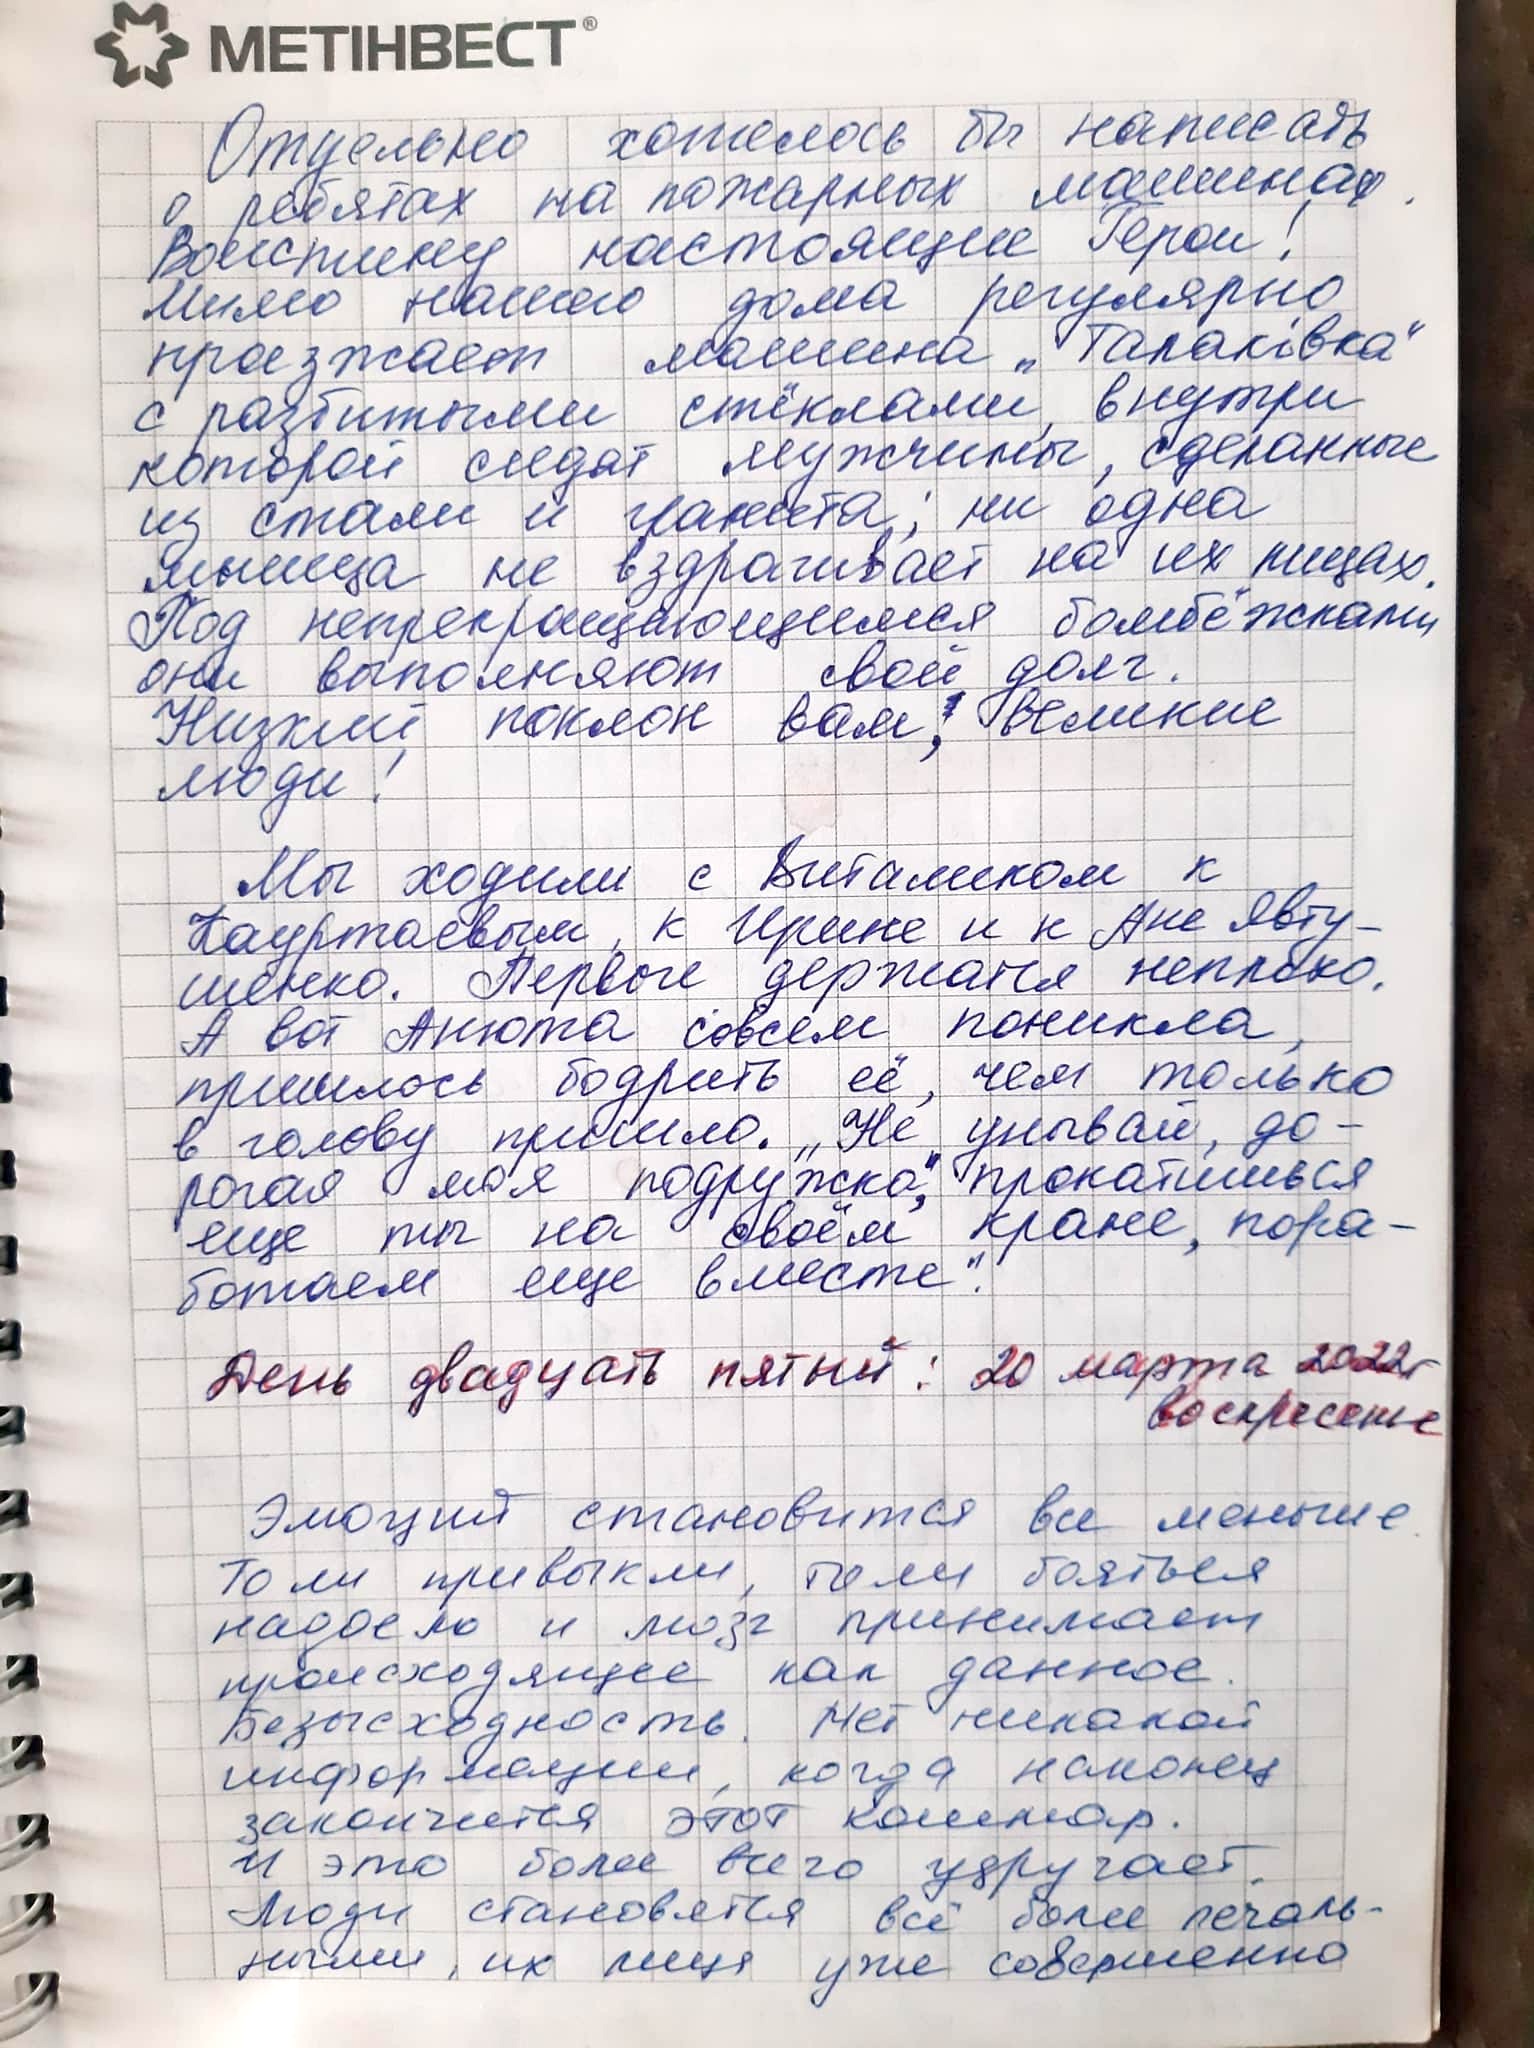 МЕТІНВЕСТ®
Отдельно хотелось бы написать
о ребятах на пожарных машинах.
Воистину настоящие Герои!
Мимо нашего дома регулярно
проезжает машина „Талаківка"
с разбитыми стёклами, внутри
которой сидят мужчины, сделанные
из стали и гранита; ни одна
мышца не вздрагивает на их лицах.
Под непрекращающимися бомбёжками
они выполняют свой долг.
Низкий поклон вам, великие
люди!
Мы ходили с Виталиком к
Кауртаевым, к Ирине и к Ане Явту-
шенко. Первые держатся неплохо.
А вот Анюта совсем поникла,
пришлось бодрить её, чем только
в голову пришло. „Не унывай, до-
рогая моя подружка", прокатишься
еще ты на своём кране, пора-
ботаем еще вместе".
День двадцать пятый: 20 марта 2022г
воскресенье
Эмоций становится все меньше.
То ли привыкли, то ли бояться
надоело и мозг принимает
происходящее как данное.
Безысходность. Нет никакой
информации, когда наконец
закончится этот кошмар.
И это более всего удручает.
Люди становятся всё более печаль-
ными, их лица уже совершенно